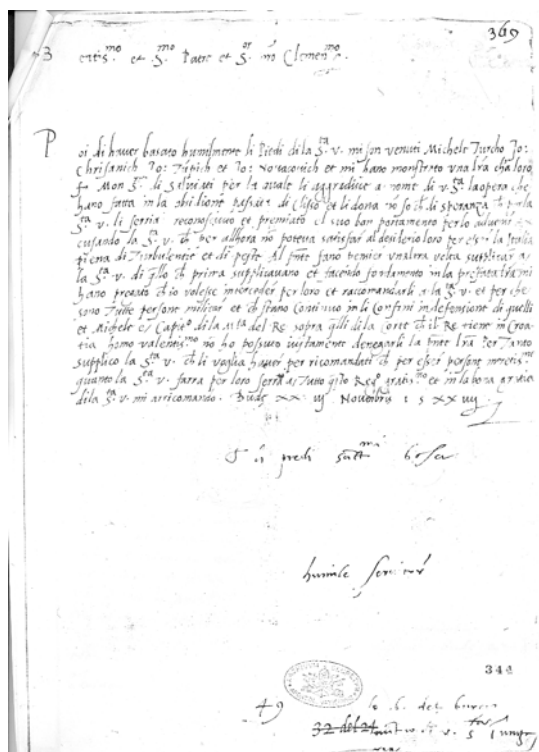 369
Poi di haver basato humilmente li Piedi dila S.ta v. mi son venuti Michele Turcho Jo:
Chrisanich Jo: et Jo: Novacovich et mi hano monstrato una lra cha loro
Mon S. di Salviati per la quale li aggradisce a nome di v. S.ta la opera che
hano fatta in la obsidione passata di Clisso et li dona no so che di speranza che per la
S.ta v. li seria reconosciuto et premiato el suo bon portamento per lo advenir
cusando la S.ta v. che per allhora no poteva satisfar al desiderio loro per esser la Italia
piena di Turbulentie et di peste. Al pnte fano pensier unaltra volta supplicar a
la S.ta v. di quello che prima supplicavano et facendo fondamento in la prefata lra mi
hano pregato che io volesse interceder per loro et raccomandarli a la S.ta v. et per che
sono Tutte persone militar et che stano Continuo in li Confini in defensione di quelli
et Michele es Capit.o dila M.ta del Re sopra quelli dila Corte che il Re tiene in Croa
tia homo valentis.mo no ho possuto iustamente denegarli la pnte lra Per Tanto
supplico la S.ta v. che li voglia haver per ricomandati che per esser persone
quanto la S.ta v. farra per loro serra a Tutto questo Reg.o gratis.mo et in la bona gratia
dila S.ta v. mi arricomando. Bude XX iiij Novembris 1 5 XX iiij
humile servitor
344
49
32 del 24